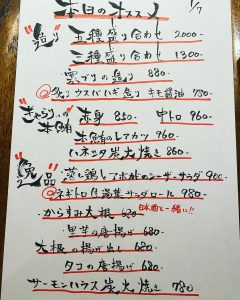 本日のオススメ 1/7
造り
五種盛り合わせ 2000-
三種盛り合わせ 1300-
寒ブリの造り 880-
ウスバハギ キモ醤油 730-
本鮪
赤身 850- 中トロ 960-
本鮪のレアカツ 960-
ハネシタ炭火焼き 860-
一品
蒸し鶏とアボカドのシーザーサラダ 900
ネギトロ 980-
からすみ大根 620- 日本酒と一緒に!!
里芋の唐揚げ 680-
大根の揚げ出し 680-
タコの唐揚げ 680-
サーモンハラス炭火焼き 780-